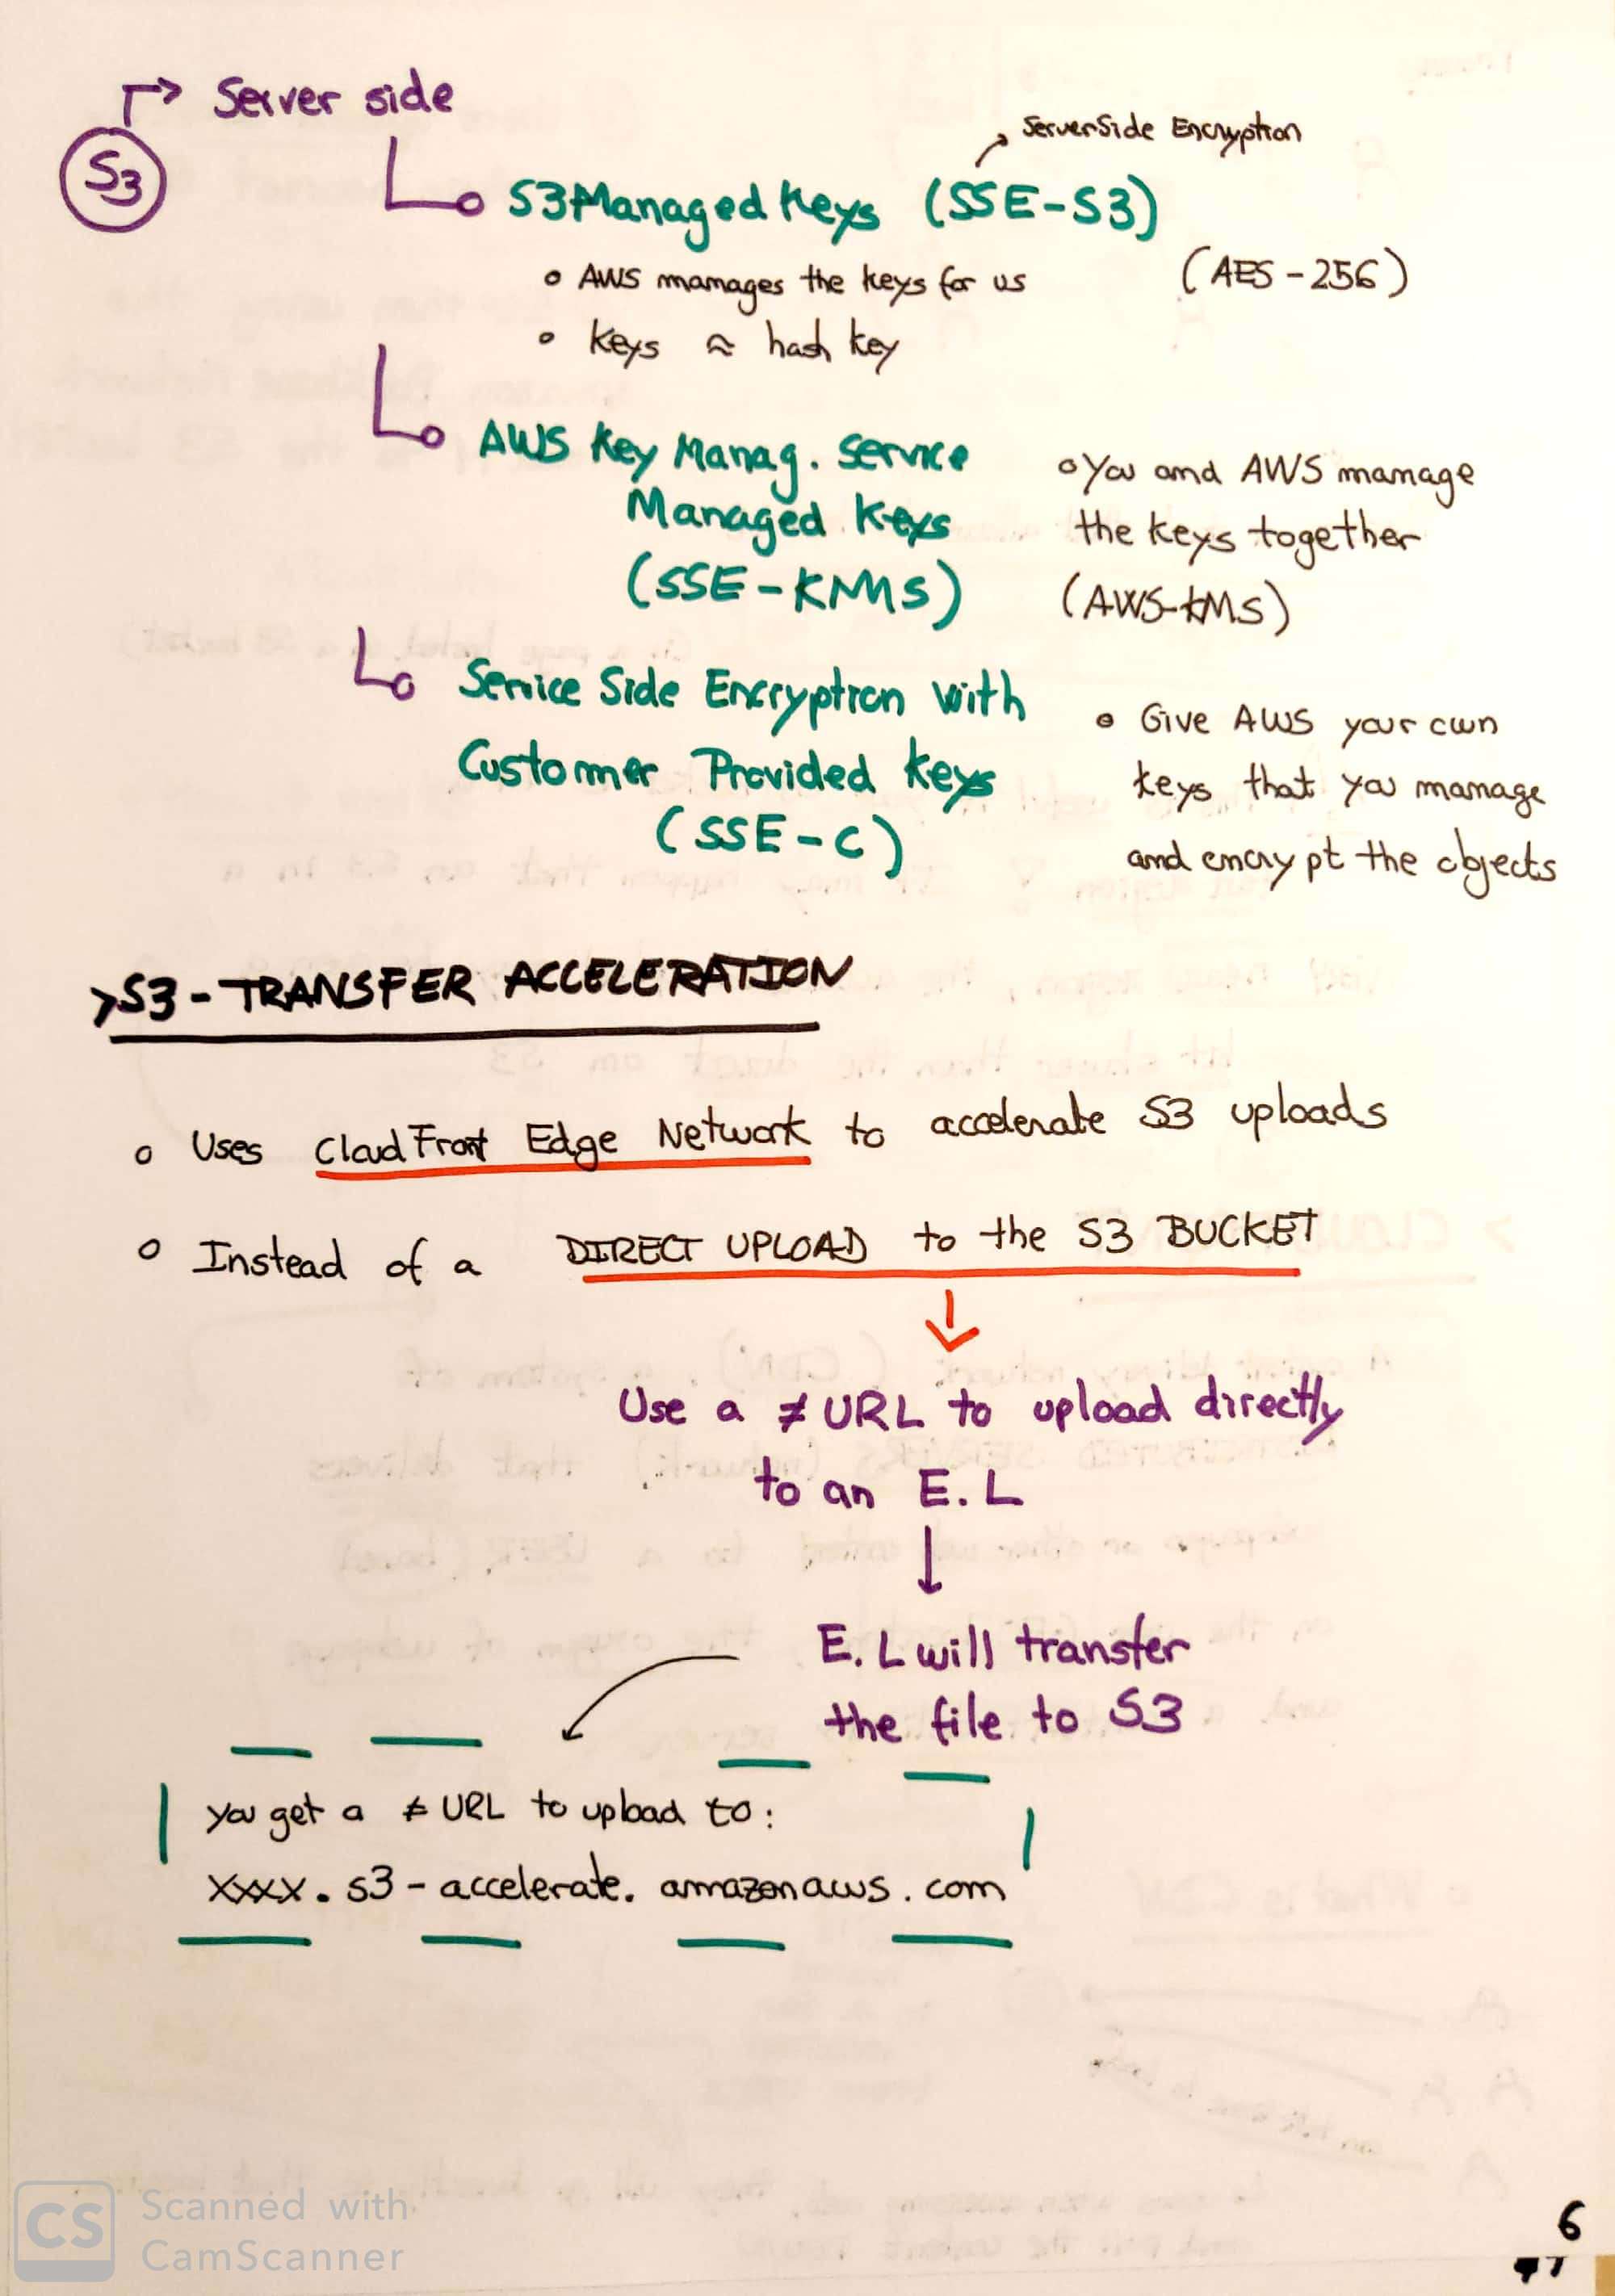 Server side
S3
ServerSide Encryption
S3 Managed Keys (SSE-S3)
• AWS manages the keys for us (AES-256)
• Keys ≈ hash key
AWS Key Manag. Service
Managed Keys
(SSE-KMS)
• You and AWS manage
the keys together
(AWS-KMS)
Service Side Encryption with
Customer Provided Keys
(SSE-C)
• Give AWS your own
keys that you manage
and encrypt the objects
>S3-TRANSFER ACCELERATION
• Uses CloudFront Edge Network to accelerate S3 uploads
• Instead of a DIRECT UPLOAD to the S3 BUCKET
Use a ≠ URL to upload directly
to an E.L
E.L will transfer
the file to S3
you get a ≠ URL to upload to:
xxxx.s3-accelerate.amazonaws.com
CS Scanned with
CamScanner
6